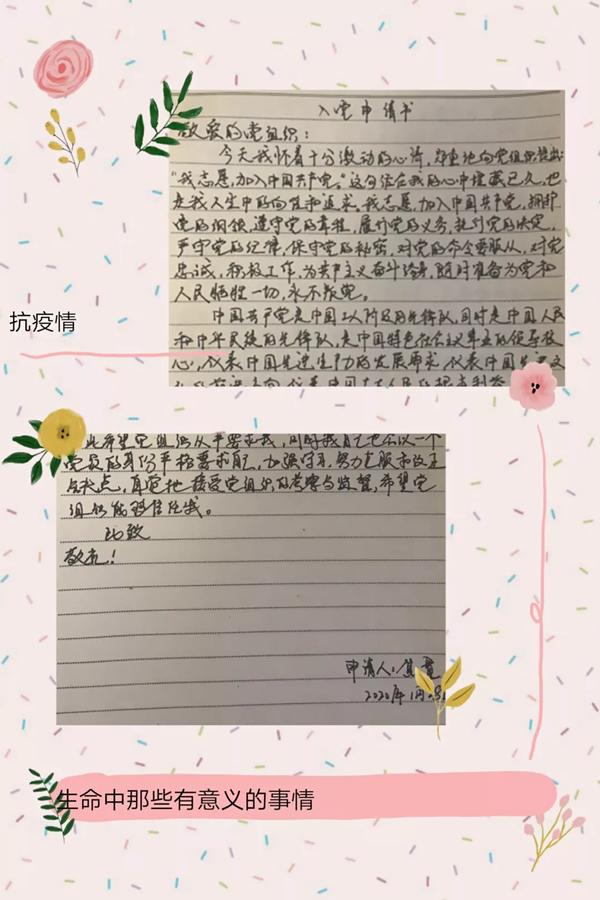 入党申请书
敬爱的党组织：
今天我怀着十分激动的心情，郑重地向党组织提出：
“我志愿加入中国共产党。”这句话在我的心中埋藏已久，也
是我人生中的向往和追求。我志愿加入中国共产党，拥护
党的纲领，遵守党的章程，履行党的义务，执行党的决定，
严守党的纪律，保守党的秘密，对党的命令要服从，对党
忠诚，积极工作，为共产主义奋斗终身，随时准备为党和
人民牺牲一切，永不叛党。
中国共产党是中国工人阶级的先锋队，同时是中国人民
和中华民族的先锋队，是中国特色社会主义事业的领导核
心，代表中国先进生产力的发展要求，代表中国先进文
抗疫情
此希望党组织从严要求我，同时我自己也会以一个
党员的身份严格要求自己，加强学习，努力克服和改正
缺点，自觉地接受党组织的考察与监督，希望党
组织能够信任我。
此致
敬礼！
申请人：
2020年1月
生命中那些有意义的事情